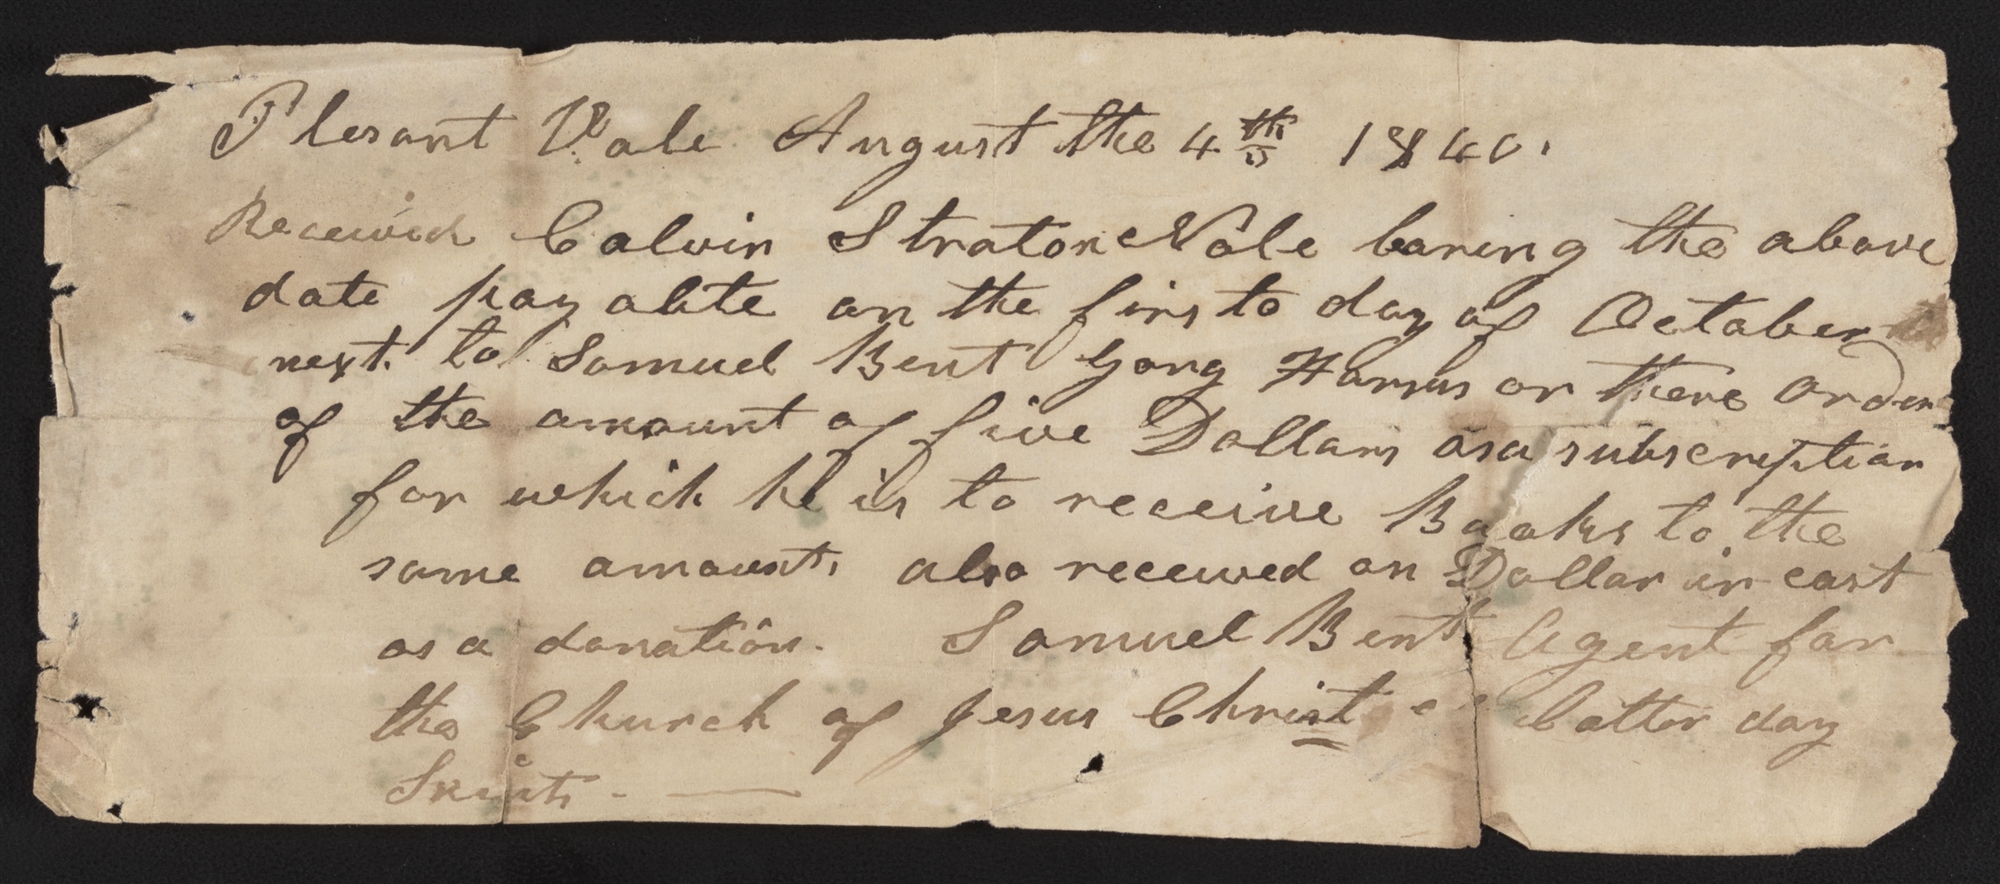 Plesant Vale August the 4th 1840.
Received Calvin Straton Note baring the above
date pay able on the firs to day of October
next. to Samuel Bent Gorg Harris or there order
of the amount of five Dollars as a subscription
for which he is to receive Books to the
same amount, also received on Dollar in cast
as a donation. Samuel Bent Agent for
the Church of Jesus Christ Latter day
Saints.